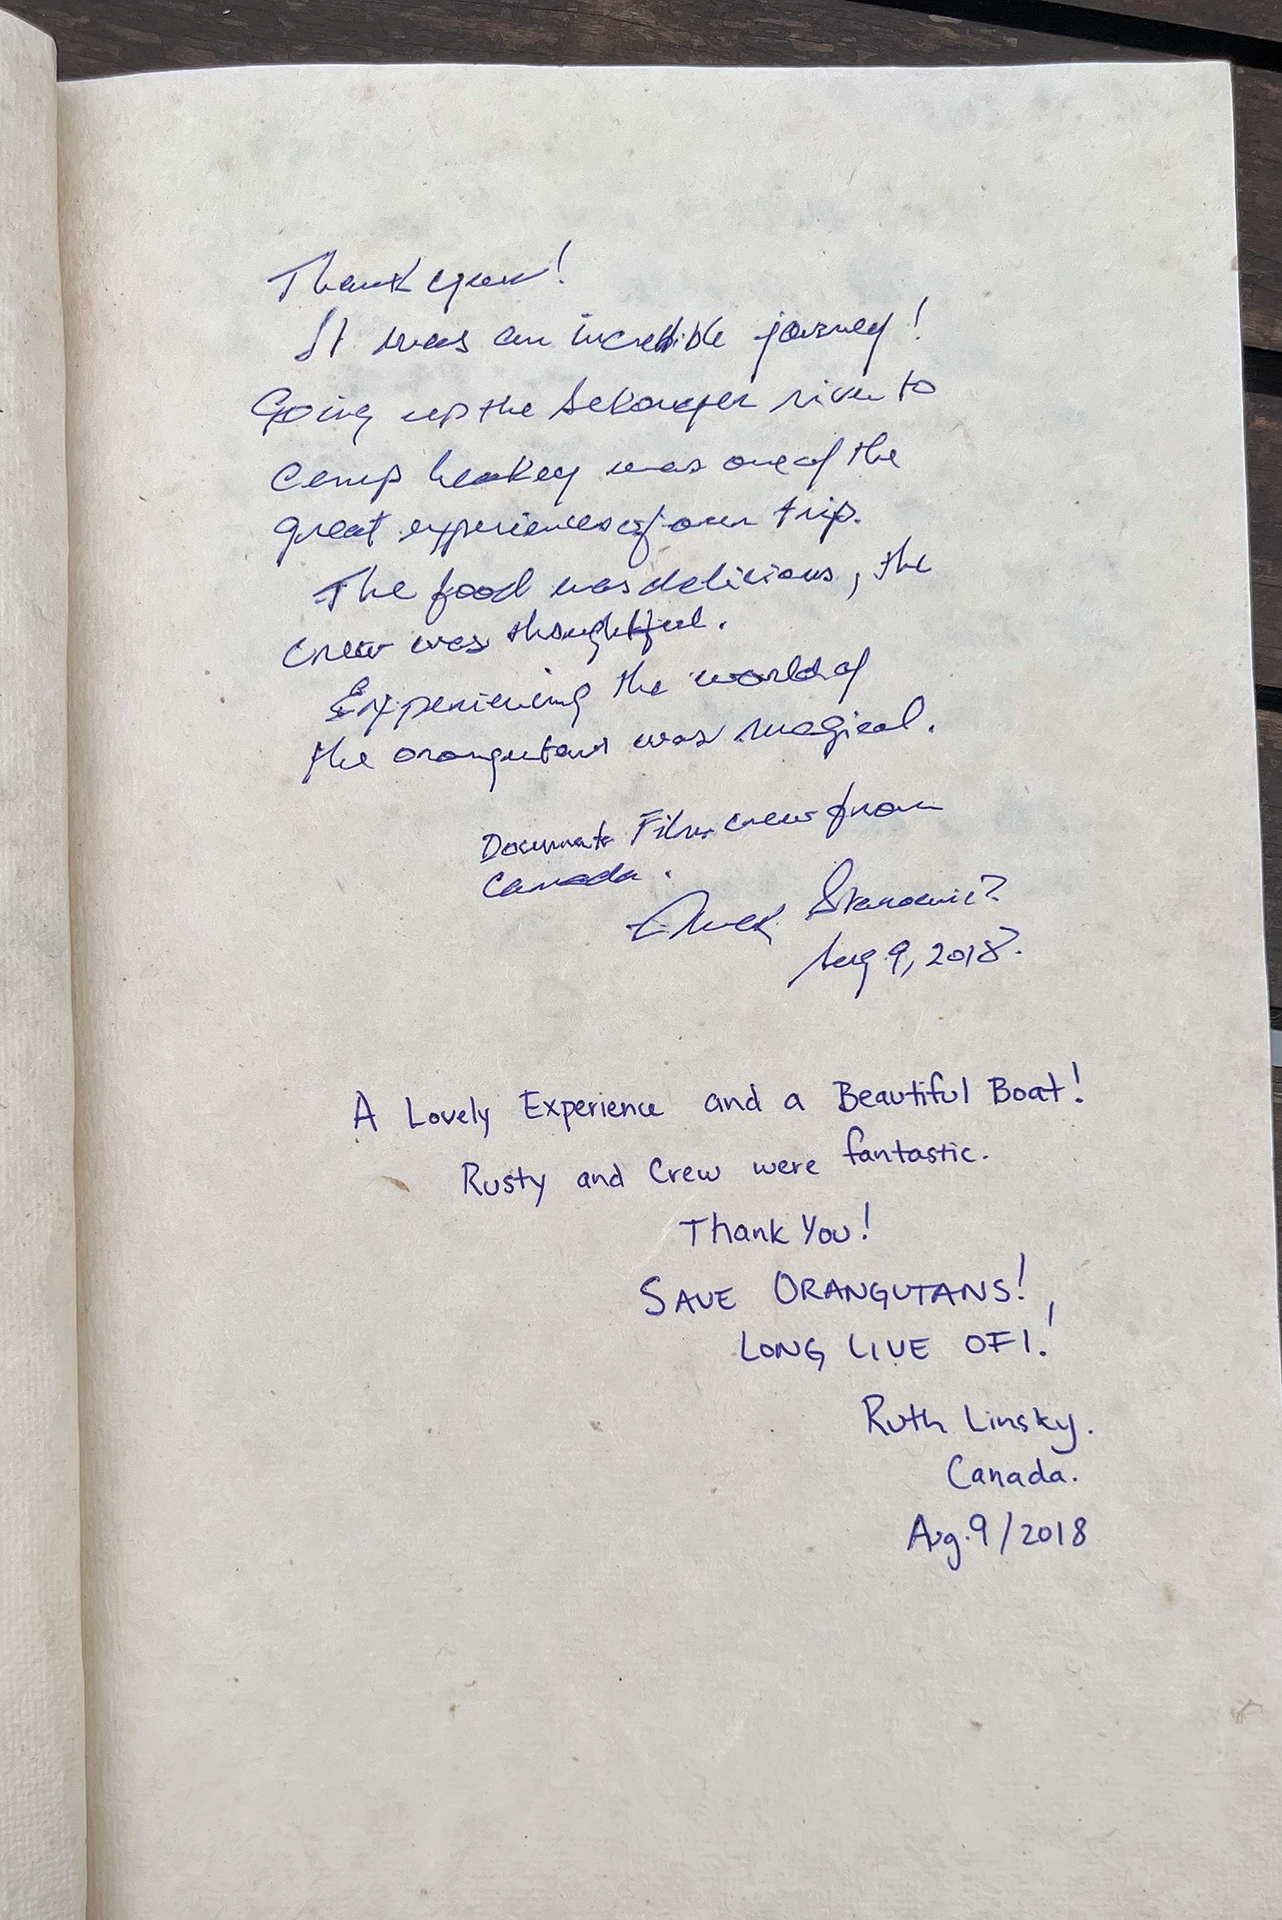 Thank you!
It was an incredible journey!
Going up the Sekonyer river to
Camp Leakey was one of the
great experiences of our trip.
The food was delicious, the
crew was thoughtful.
Experiencing the world of
the orangutans was magical.
Film crew from
Canada.
Aug. 9, 2018.
A Lovely Experience and a Beautiful Boat!
Rusty and Crew were fantastic.
Thank You!
SAVE ORANGUTANS!
LONG LIVE OFI!
Ruth Linsky.
Canada.
Aug. 9/2018